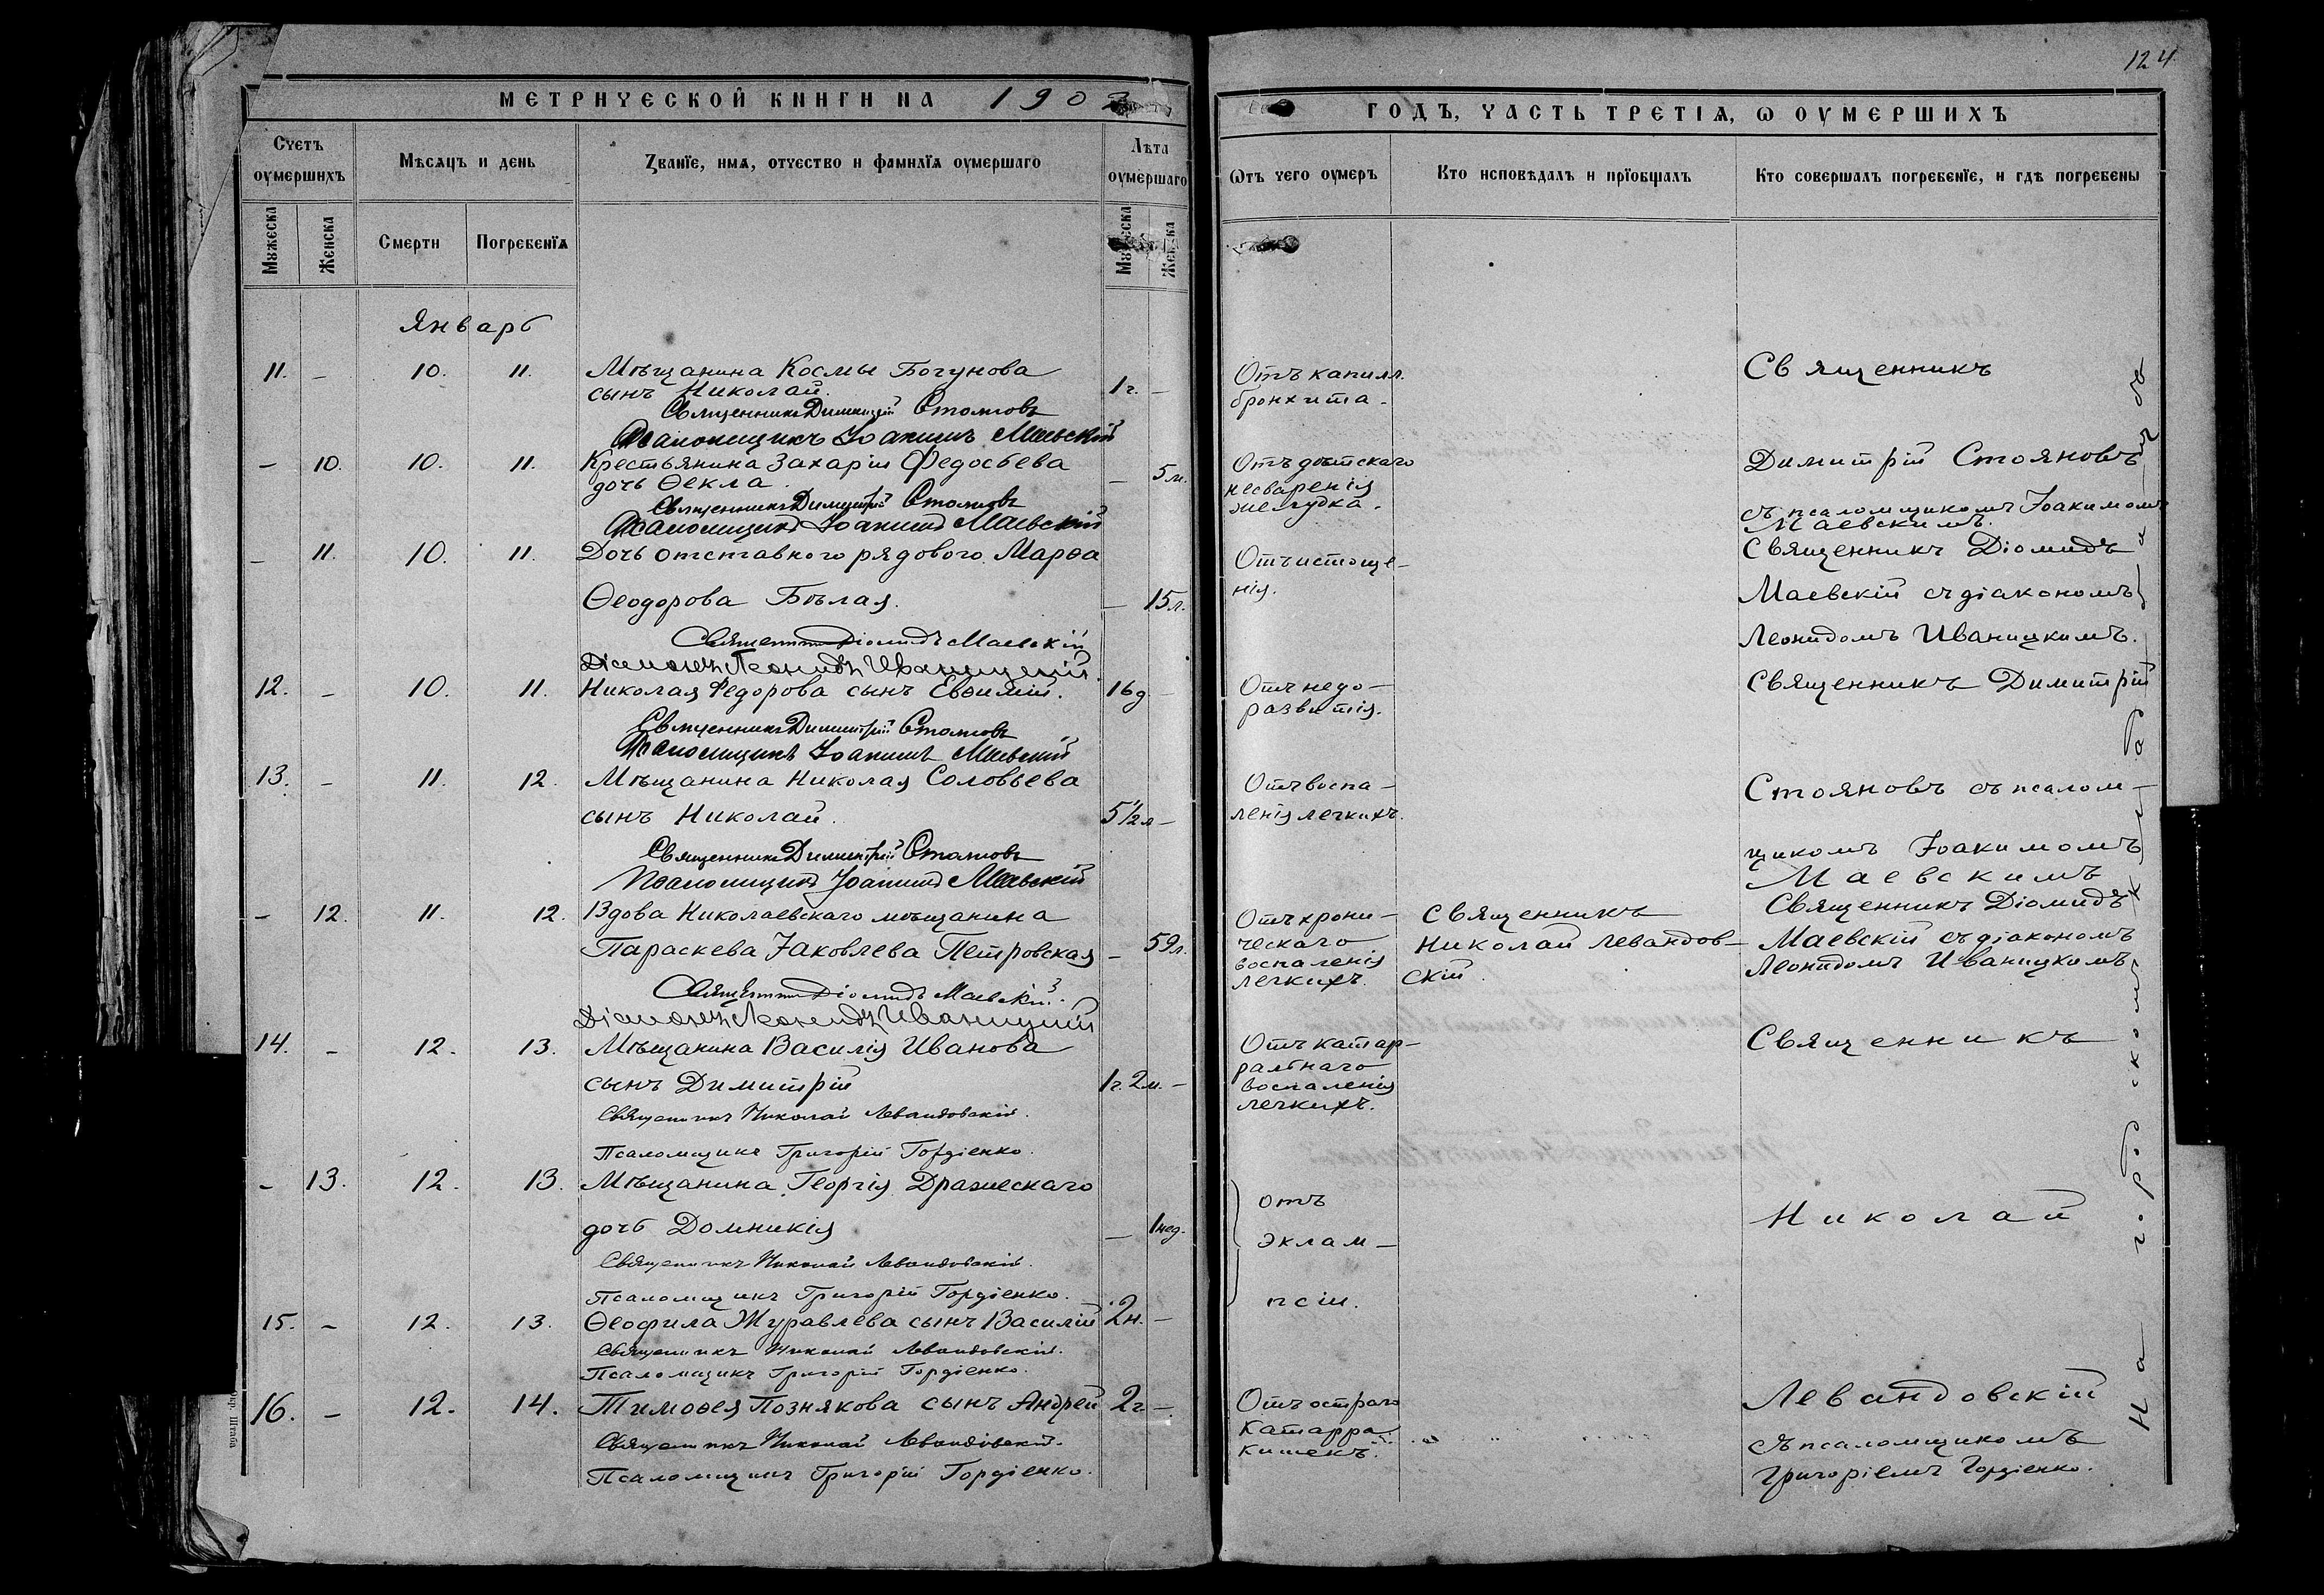 МЕТРИЧЕСКОЙ КНИГИ НА 1902
Счетъ оумершихъ
Мѣсяцъ и день
Званїе, имя, отчество и фамилїя оумершаго
Лѣта оумершаго
Мужеска
Женска
Смерти
Погребенїя
Мужеска
Женска
Январь
11. - 10. 11. Мѣщанина Космы Богунова
сынъ Николай. 1 г. -
Священникъ Димитрій Стояновъ
Псаломщикъ Іоакимъ Маевскій
- 10. 10. 11. Крестьянина Захаріи Федосѣева
дочь Ѳекла. - 5 м.
Священникъ Димитрій Стояновъ
Псаломщикъ Іоакимъ Маевскій
- 11. 10. 11. Дочь отставного рядового Марѳа
Ѳеодорова Бѣлая. - 15 л.
Священникъ Діомидъ Маевскій
Діаконъ Леонидъ Иваницкій.
12. - 10. 11. Николая Федорова сынъ Евѳимій. 16 д -
Священникъ Димитрій Стояновъ
Псаломщикъ Іоакимъ Маевскій
13. - 11. 12. Мѣщанина Николая Соловьева
сынъ Николай. 5 1/2 л -
Священникъ Димитрій Стояновъ
Псаломщикъ Іоакимъ Маевскій
- 12. 11. 12. Вдова Николаевскаго мѣщанина
Параскева Іаковлева Петровская - 59 л.
Священникъ Діомидъ Маевскій.
Діаконъ Леонидъ Иваницкій
14. - 12. 13. Мѣщанина Василія Иванова
сынъ Димитрій 1 г. 2 м. -
Священникъ Николай Левандовскій.
Псаломщикъ Григорій Гордіенко.
- 13. 12. 13. Мѣщанина Георгія Дражескаго
дочь Домникія - 1 нед.
Священникъ Николай Левандовскій.
Псаломщикъ Григорій Гордіенко.
15. - 12. 13. Ѳеофила Журавлева сынъ Василій 2 н. -
Священникъ Николай Левандовскій.
Псаломщикъ Григорій Гордіенко.
16. - 12. 14. Тимоѳея Познякова сынъ Андрей 2 г -
Священникъ Николай Левандовскій.
Псаломщикъ Григорій Гордіенко.
124
ГОДЪ, ЧАСТЬ ТРЕТІѦ, Ѡ ОУМЕРШИХЪ
Ѡтъ чего оумеръ
Кто исповѣдалъ и прїобщалъ
Кто совершалъ погребенїе, и гдѣ погребены
Отъ капилл.
бронхита.
Отъ дѣтскаго
несваренія
желудка.
Отъ истоще-
нія.
Отъ недо-
развитія.
Отъ воспа-
ленія легкихъ.
Отъ хрони-
ческаго
воспаленія
легкихъ.
Отъ катар-
ральнаго
воспаленія
легкихъ.
отъ
эклам-
псіи.
Отъ остраго
катарра
кишекъ.
Священникъ
Николай Левандов-
скій.
Священникъ
Димитрій Стояновъ
съ псаломщикомъ Іоакимомъ
Маевскимъ.
Священникъ Діомидъ
Маевскій съ діакономъ
Леонидомъ Иваницкимъ.
Священникъ Димитрій
Стояновъ съ псалом-
щикомъ Іоакимомъ
Маевскимъ
Священникъ Діомидъ
Маевскій съ діакономъ
Леонидомъ Иваницкимъ
Священникъ
Николай
Левандовскій
съ псаломщикомъ
Григоріемъ Гордіенко.
На городскомъ кладбищѣ